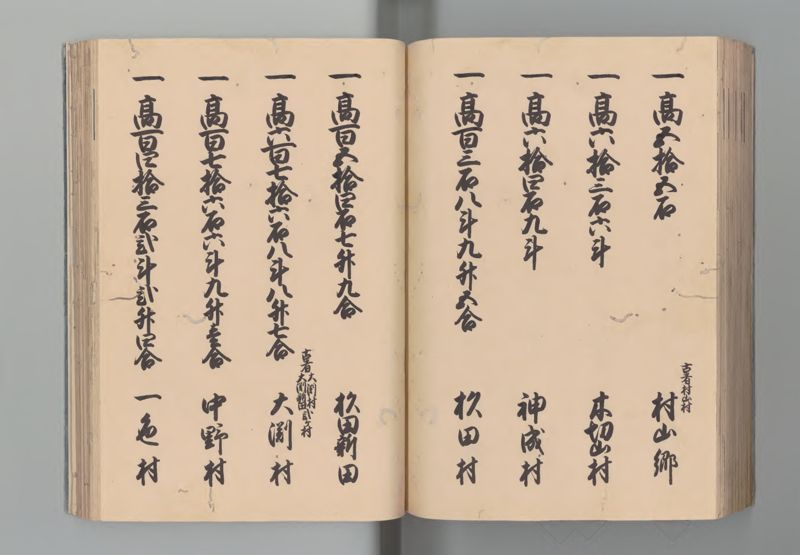 一高五拾五石 古者村山村 村山郷
一高六拾三石六斗 木切山村
一高六拾四石九斗 神成村
一高百三石八斗九升五合 杉田村
一高百五拾四石七升九合 杉田新田
一高六百七拾六石八斗八升七合 古者大渕村大渕新田弐ケ村 大渕村
一高百七拾六石六斗九升壱合 中野村
一高百四拾三石弐斗弐升四合 一色村